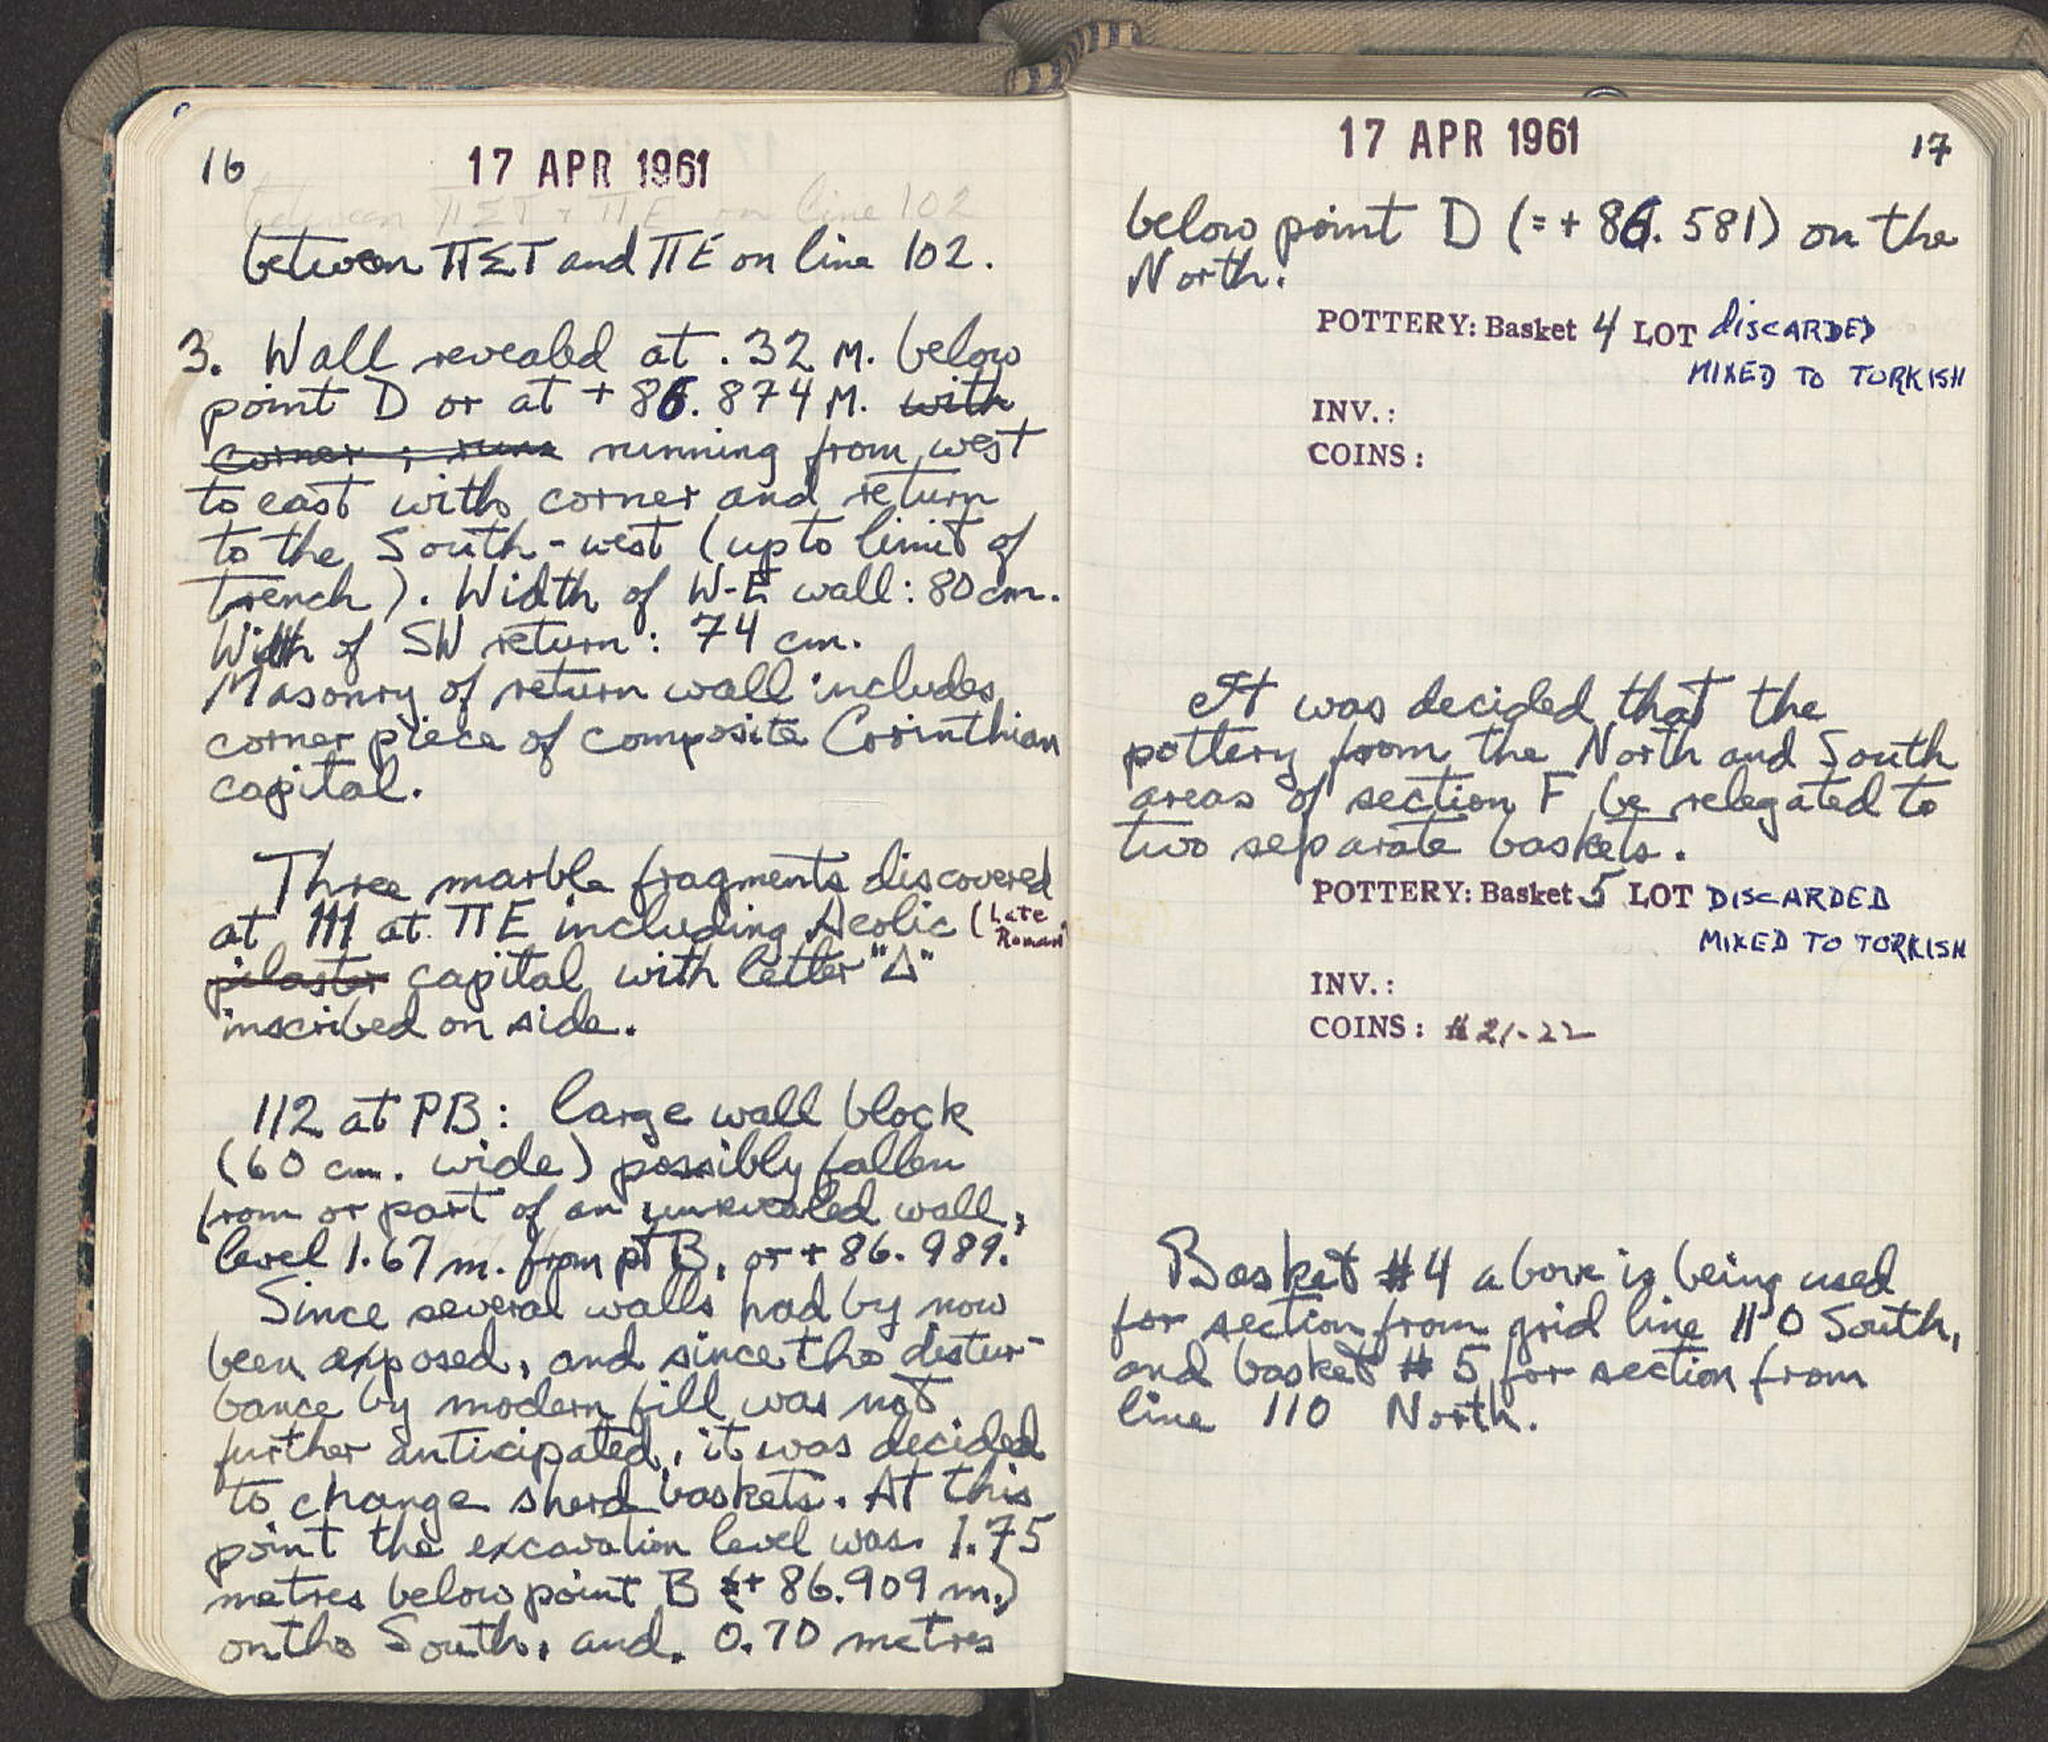 16
17 APR 1961
between ΠΣΤ + ΠΕ on line 102
between ΠΣΤ and ΠΕ on line 102.
3. Wall revealed at .32 M. below
point D or at + 86.874 M. with
corner ; runs running from west
to east with corner and return
to the South-west (up to limit of
trench). Width of W-E wall: 80 cm.
Width of SW return: 74 cm.
Masonry of return wall includes
corner piece of composite Corinthian
capital.
Three marble fragments discovered
at 111 at ΠΕ including Aeolic (Late Roman)
pilaster capital with letter "Δ"
inscribed on side.
112 at PB: large wall block
(60 cm. wide) possibly fallen
from or part of an unrevealed wall,
level 1.67 m. from pt B, or + 86.989.
Since several walls had by now
been exposed, and since the distur-
bance by modern fill was not
further anticipated, it was decided
to change sherd baskets. At this
point the excavation level was 1.75
metres below point B (+ 86.909 m.)
on the South, and 0.70 metres
17 APR 1961
17
below point D (= + 86.581) on the
North.
POTTERY: Basket 4 LOT DISCARDED
MIXED TO TURKISH
INV.:
COINS:
It was decided that the
pottery from the North and South
areas of section F be relegated to
two separate baskets.
POTTERY: Basket 5 LOT DISCARDED
MIXED TO TURKISH
INV.:
COINS: #21-22
Basket #4 above is being used
for section from grid line 110 South,
and basket # 5 for section from
line 110 North.